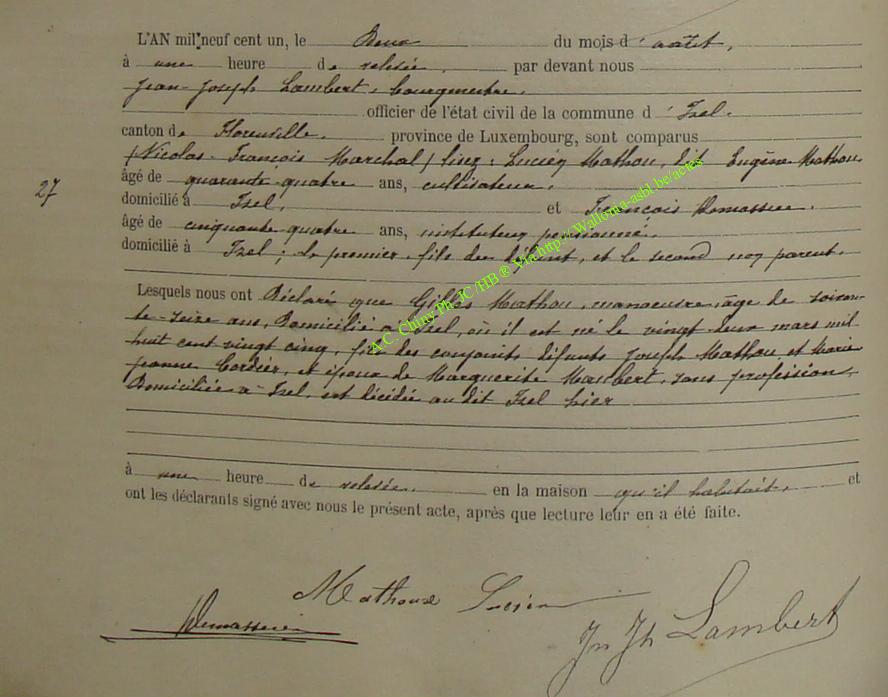 L'AN mil neuf cent un, le Deux du mois d'août,
à une heure de relevée, par devant nous
Jean-Joseph Lambert, bourgmestre,
officier de l'état civil de la commune d'Izel,
canton de Florenville, province de Luxembourg, sont comparus
(Nicolas François Marchal) Lucien Mathou, dit Eugène Mathou
27
âgé de quarante-quatre ans, cultivateur,
domicilié à Izel, et François Demasseur,
âgé de cinquante-quatre ans, instituteur pensionné,
domicilié à Izel; le premier fils du défunt, et le second non parent,
A.C. Chiny Ph JC HB ® Via http://Wallonia-asbl.be/actes
Lesquels nous ont Déclaré que Gilles Mathou, manoeuvre, âgé de soixan-
te-seize ans, Domicilié à Izel, où il est né le vingt-deux mars mil
huit cent vingt cinq, fils des conjoints défunts Joseph Mathou et Marie
Jeanne Cordier, et époux de Marguerite Maubert, sans profession,
Domiciliée à Izel, est décédé au dit Izel hier
à une heure de relevée, en la maison qu'il habitait, et
ont les déclarants signé avec nous le présent acte, après que lecture leur en a été faite.
Mathoux Lucien
Jn Jh Lambert